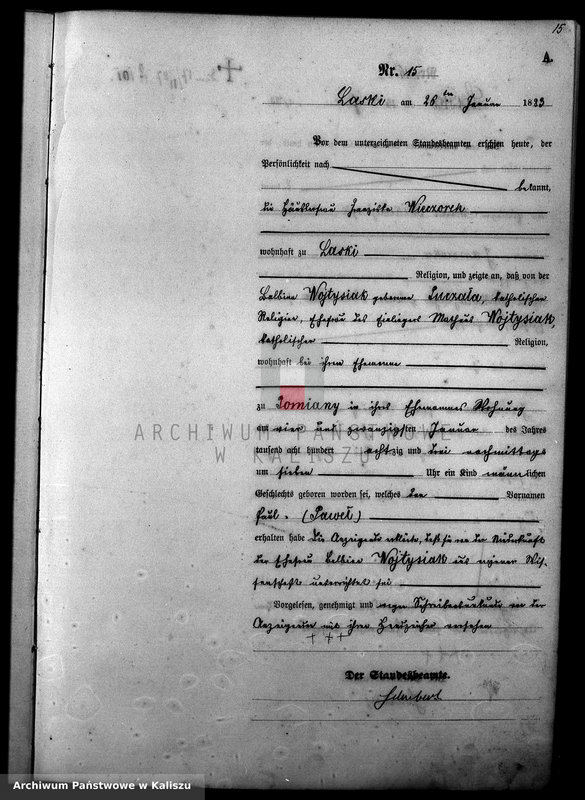 15
A.
Nr. 15
Laski am 26ten Januar 1883
Vor dem unterzeichneten Standesbeamten erschien heute, der
Persönlichkeit nach
bekannt,
die Häuslerfrau Franziska Wieczorek
wohnhaft zu Laski
Religion, und zeigte an, daß von der
Balbina Wojtysiak geborene, katholischer
Religion, Ehefrau des Einliegers Mathäus Wojtysiak,
katholischer Religion,
wohnhaft bei ihrem Ehemanne
zu Pomiany in ihres Ehemannes Wohnung
am vier und zwanzigsten Januar des Jahres
tausend acht hundert achtzig und drei nachmittags
um sieben Uhr ein Kind männlichen
Geschlechts geboren worden sei, welches den Vornamen
Paul. (Paweł)
erhalten habe die Anzeigende erklärte, daß sie von der Niederkunft
der Ehefrau Balbina Wojtysiak aus eigener Wis-
senschaft unterrichtet sei
Vorgelesen, genehmigt und wegen Schreibensunkunde von der
Anzeigenden mit ihrem Handzeichen versehen
+ + +
Der Standesbeamte.
ARCHIWUM PAŃSTWOWE
W KALISZU
Archiwum Państwowe w Kaliszu